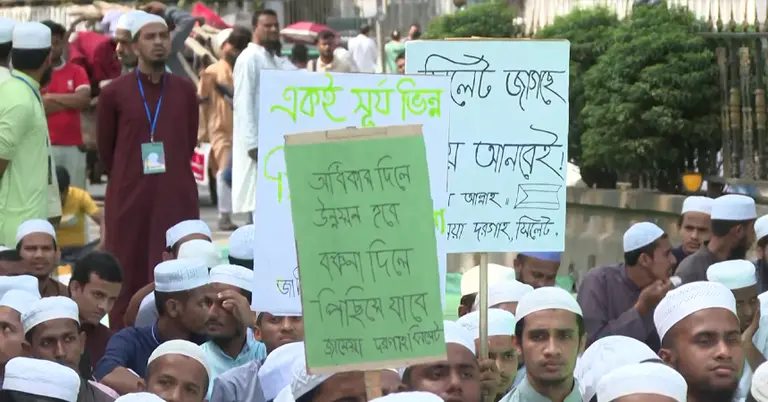 একই সূর্য ভিন্ন
সিলেট জাগছে
আনবেই!
আল্লাহ
দরগাহ, সিলেট.
অধিকার দিলে
উন্নয়ন হবে
বঞ্চনা দিলে
পিছিয়ে যাবে
জামেয়া দরগাহ সিলেট